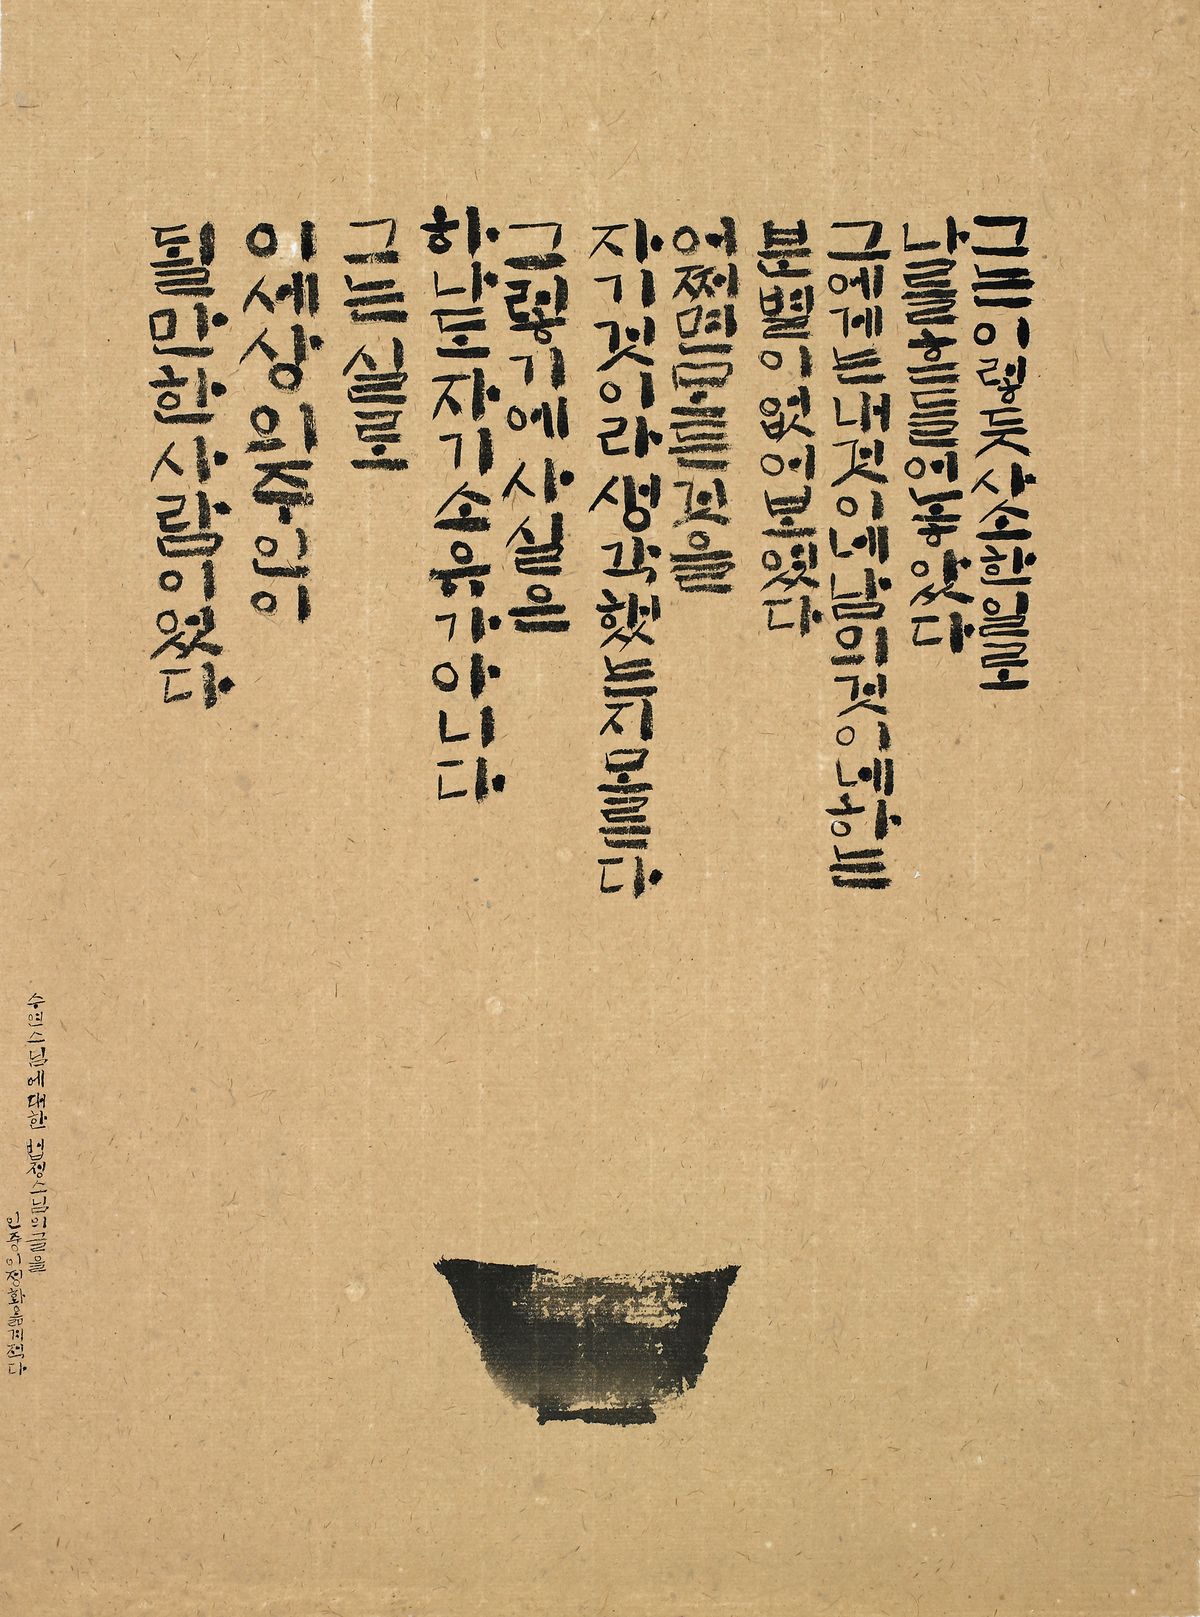 그는이렇듯사소한일로
나를흔들어놓았다
그에게는내것이네남의것이네하는
분별이없어보였다
어쩌면모든것을
자기것이라생각했는지모른다
그렇기에사실은
하나도자기소유가아니다
그는실로
이세상의주인이
될만한사람이었다
수연스님에대한법정스님의글을